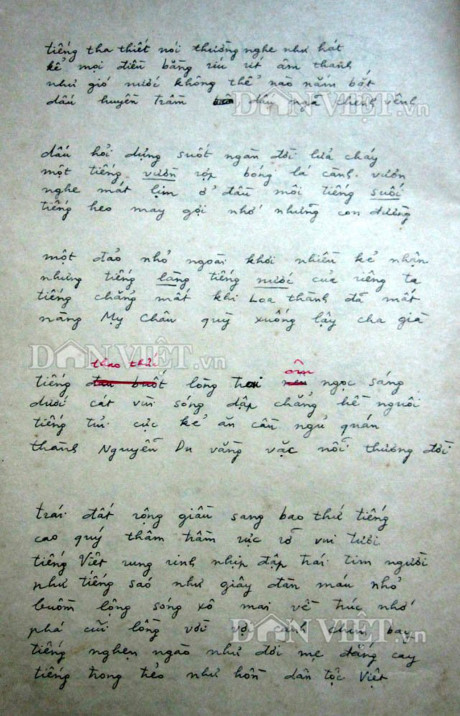 tiếng tha thiết nói thường nghe như hát
kể mọi điều bằng ríu rít âm thanh
như gió nước không thể nào nắm bắt
dấu huyền trầm dấu ngã chênh vênh
dấu hỏi dựng suốt ngàn đời lửa cháy
một tiếng vườn rợp bóng lá cành vươn
nghe mát lịm ở đầu môi tiếng suối
tiếng heo may gợi nhớ những con đường
một đảo nhỏ ngoài khơi nhiều kẻ nhận
nhưng tiếng làng tiếng nước của riêng ta
tiếng chẳng mất khi Loa thành đã mất
nàng Mỵ Châu quỳ xuống lạy cha già
DÂN VIỆT.vn
thao thức ôm
tiếng đau buốt lòng trai ngọc sáng
dưới cát vùi sóng dập chẳng hề nguôi
tiếng tủi cực kẻ ăn cầu ngủ quán
thành Nguyễn Du vằng vặc nỗi thương đời
trái đất rộng giàu sang bao thứ tiếng
cao quý thâm trầm rực rỡ vui tươi
tiếng Việt rung rinh nhịp đập trái tim người
như tiếng sáo như giây đàn máu nhỏ
buồm lộng sóng xô mai về trúc nhớ
phá cũi lồng vời vợi cánh chim bay
tiếng nghẹn ngào như đời mẹ đắng cay
tiếng trong trẻo như hồn dân tộc Việt